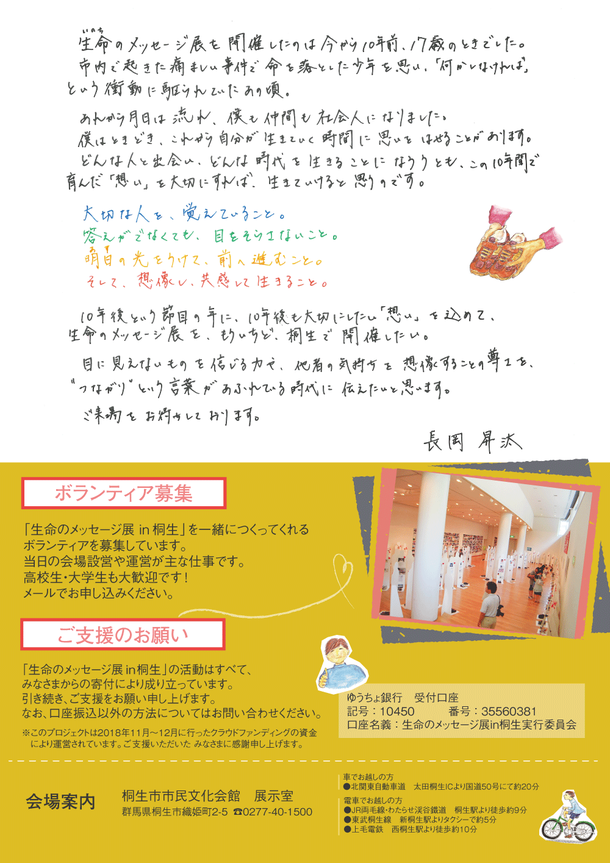 いのち
生命のメッセージ展を開催したのは今から10年前、17歳のときでした。
市内で起きた痛ましい事件で命を落とした少年を思い、「何かしなければ」
という衝動に駆られていたあの頃。
あれから月日は流れ、僕も仲間も社会人になりました。
僕はときどき、これから自分が生きていく時間に思いをはせることがあります。
どんな人と出会い、どんな時代を生きることになろうとも、この10年間で
育んだ「想い」を大切にすれば、生きていけると思うのです。
大切な人を、覚えていること。
答えがでなくても、目をそらさないこと。
あす
明日の光をうけて、前へ進むこと。
そして、想像し、共感して生きること。
10年後という節目の年に、10年後も大切にしたい「想い」を込めて、
生命のメッセージ展を、もういちど、桐生で開催したい。
目に見えないものを信じる力や、他者の気持ちを想像することの尊さを、
"つながり"という言葉があふれている時代に伝えたいと思います。
ご来場をお待ちしております。
長岡 昇汰
ボランティア募集
「生命のメッセージ展 in 桐生」を一緒につくってくれる
ボランティアを募集しています。
当日の会場設営や運営が主な仕事です。
高校生・大学生も大歓迎です！
メールでお申し込みください。
ご支援のお願い
「生命のメッセージ展in桐生」の活動はすべて、
みなさまからの寄付により成り立っています。
引き続き、ご支援をお願い申し上げます。
なお、口座振込以外の方法についてはお問い合わせください。
※このプロジェクトは2018年11月〜12月に行ったクラウドファンディングの資金
により運営されています。ご支援いただいた みなさまに感謝申し上げます。
ゆうちょ銀行　受付口座
記号：10450　番号：35560381
口座名義：生命のメッセージ展in桐生実行委員会
会場案内
桐生市市民文化会館　展示室
群馬県桐生市織姫町2-5 ☎0277-40-1500
車でお越しの方
●北関東自動車道　太田桐生ICより国道50号にて約20分
電車でお越しの方
●JR両毛線・わたらせ渓谷鐵道　桐生駅より徒歩約9分
●東武桐生線　新桐生駅よりタクシーで約5分
●上毛電鉄　西桐生駅より徒歩約10分